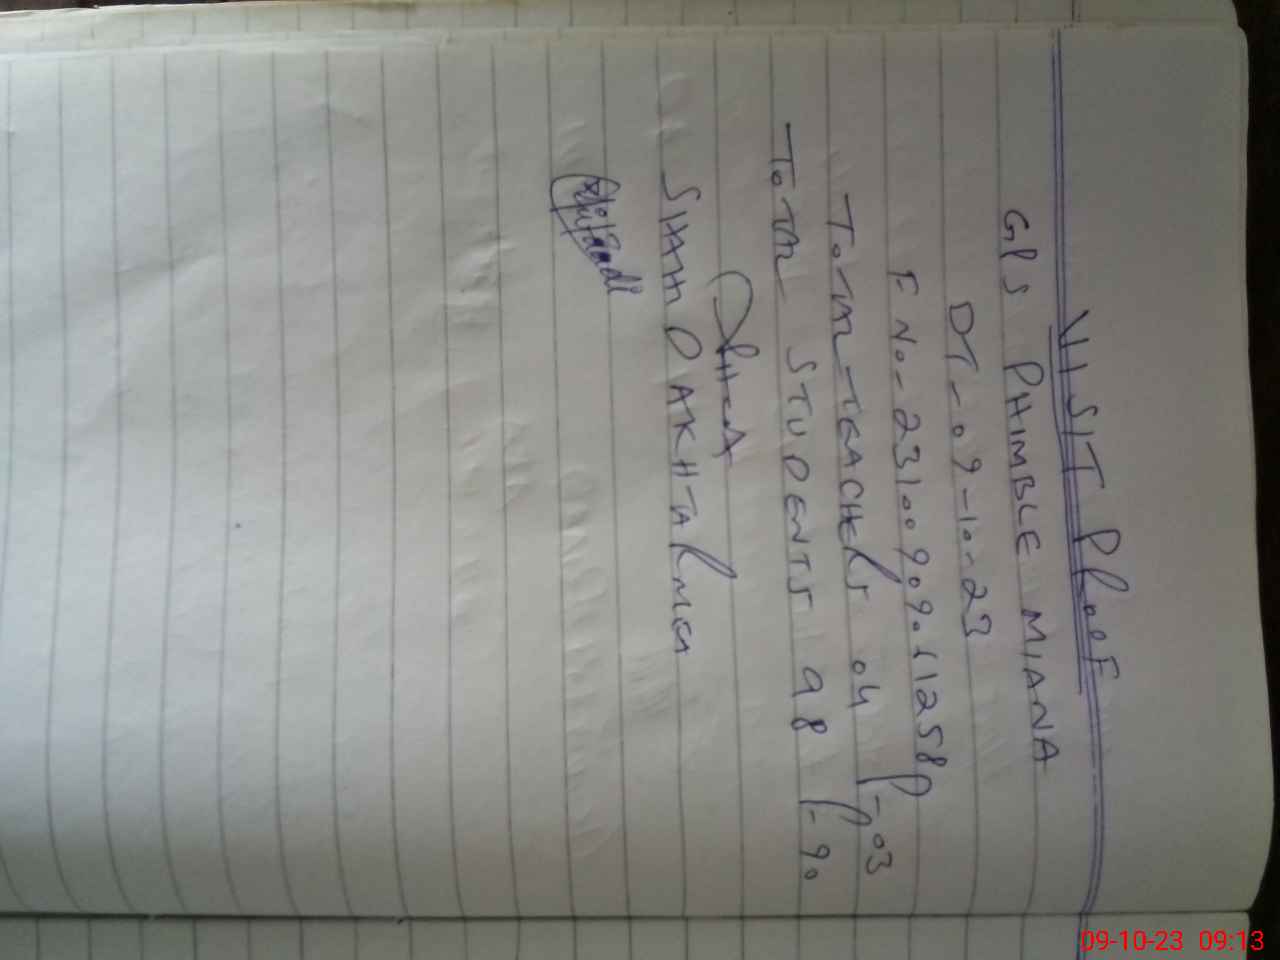 VISIT PROOF
GPS PHIMBLE MIANA
DT-09-10-23
F No-23100909011258
TOTAL-TEACHERS 04 P-03
TOTAL STUDENTS 98 P-90
SHAHD AKHTAR MCH
09-10-23 09:13